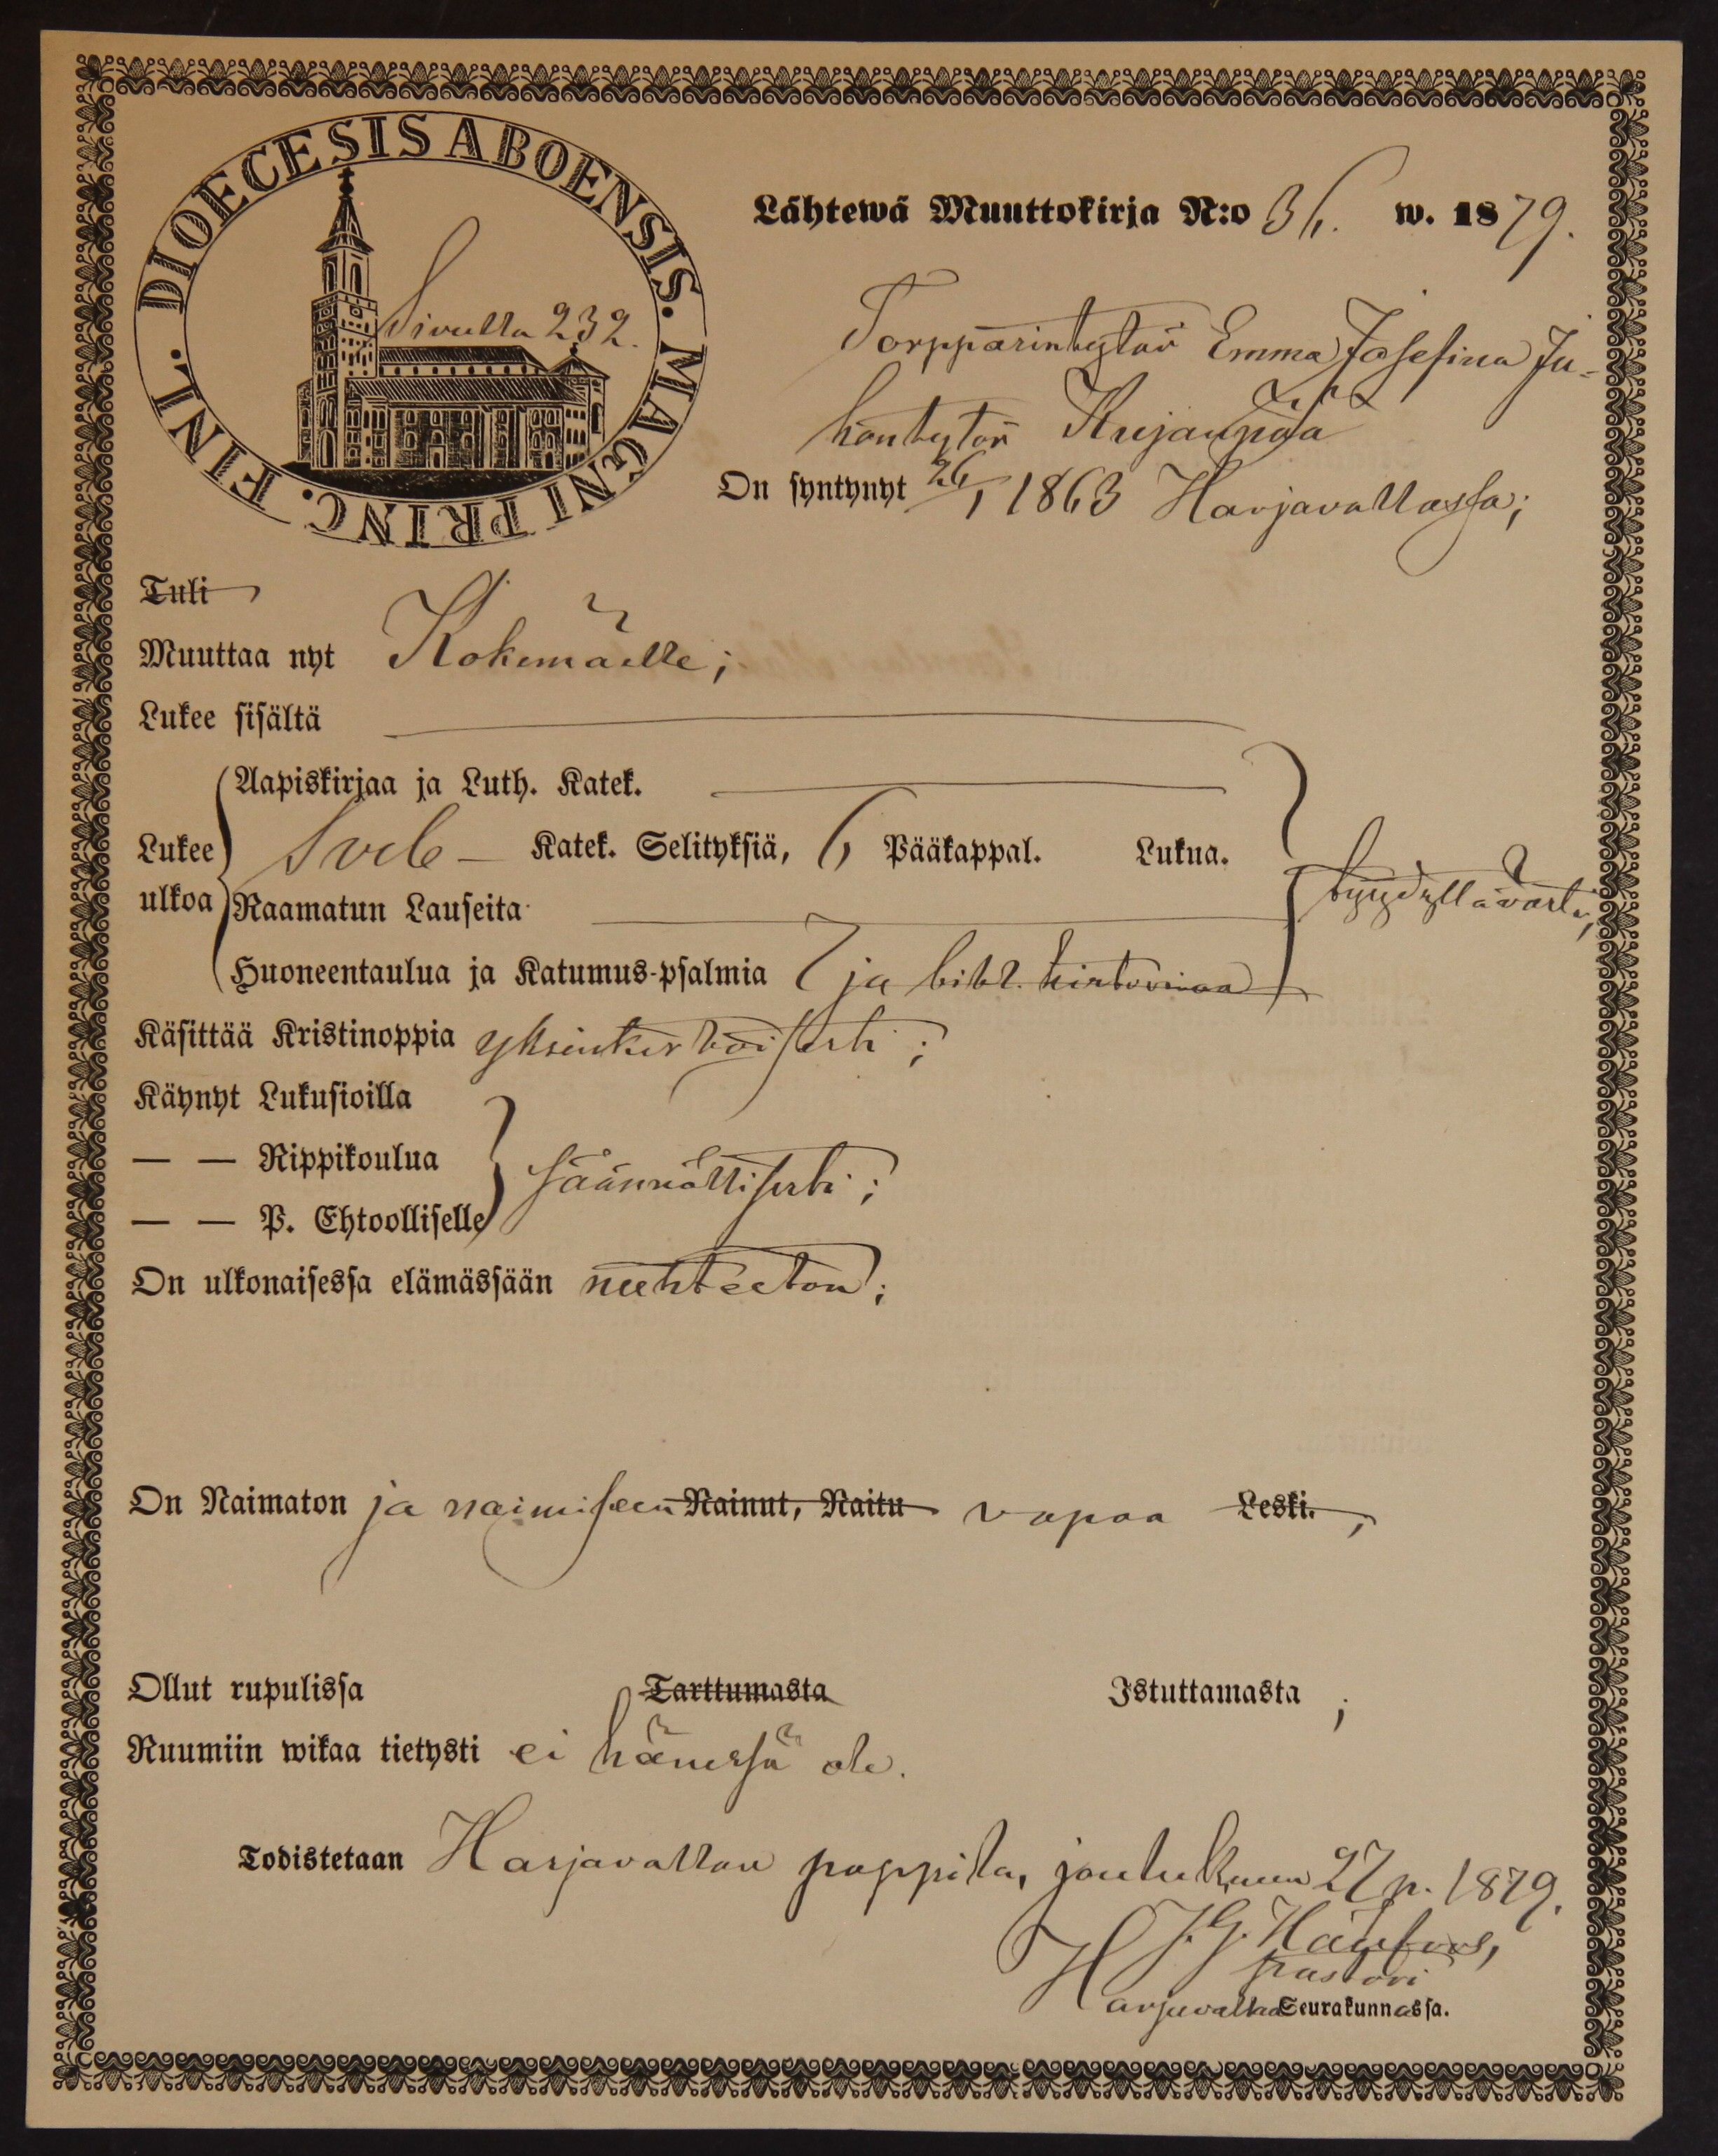 DIOECESIS ABOENSIS. MAGNI PRINC. FINL.
Sivulla 232.
Lähtewä Muuttokirja N:o 36. w. 1879.
Torpparintytär Emma Josefina Ju-
hontytär Kujanpää
On syntynyt 26/1 1863 Harjavallassa;
Tuli
Muuttaa nyt Kokemäelle;
Lukee sisältä
Aapiskirjaa ja Luth. Katek.
Lukee ulkoa Sveb- Katek. Selityksiä, 6 Pääkappal. Lukua.
tyydyttävästi;
Raamatun Lauseita
Huoneentaulua ja Katumus-psalmia 7 ja bibl. historiaa
Käsittää Kristinoppia yksinkertaisesti;
Käynyt Lukusioilla
— — Rippikoulua säännöllisesti;
— — P. Ehtoolliselle
On ulkonaisessa elämässään nuhteeton;
On Naimaton ja naimiseen Nainut, Naitu vapaa Leski. ;
Ollut rupulissa Tarttumasta Istuttamasta ;
Ruumiin wikaa tietysti ei hänessä ole.
Todistetaan Harjavallan pappila, joulukuun 27 p. 1879.
J. G.
pastori
Harjavallan Seurakunnassa.